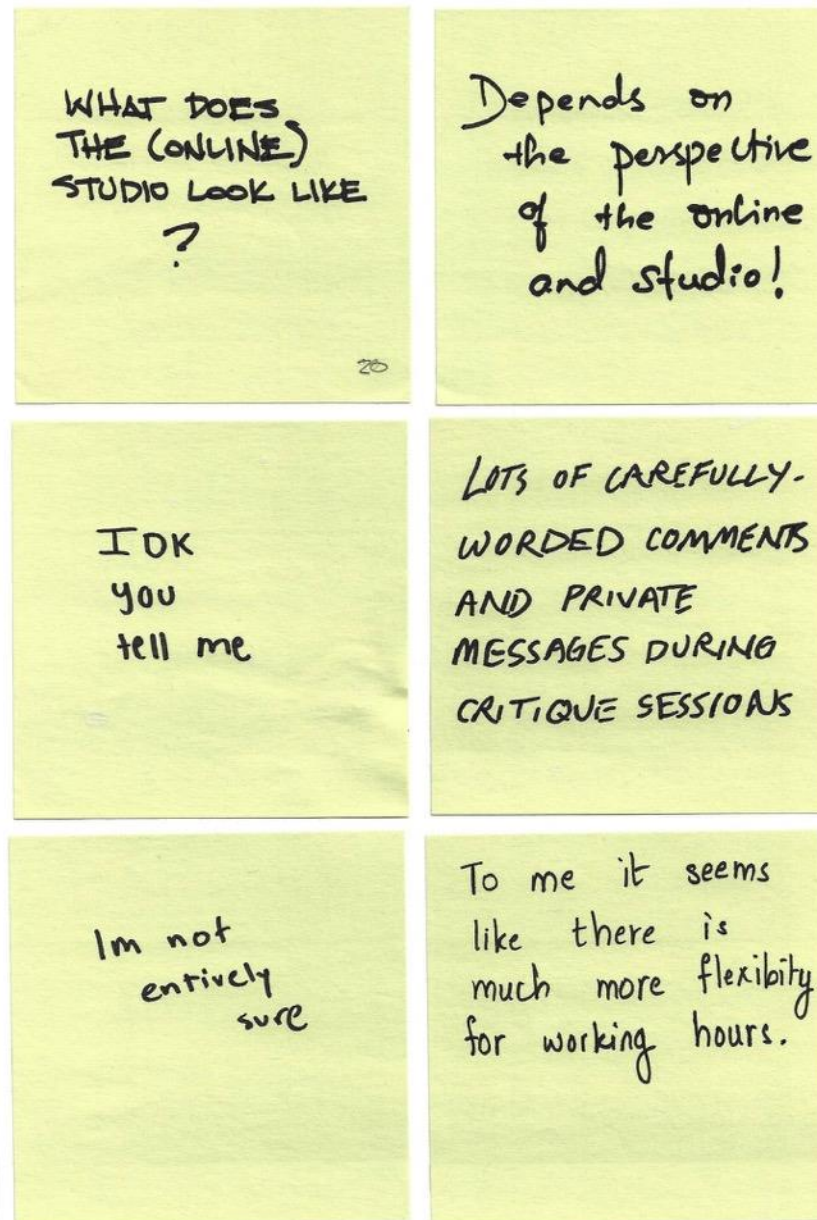 WHAT DOES
THE (ONLINE)
STUDIO LOOK LIKE
?
20
Depends on
the perspective
of the online
and studio!
IDK
you
tell me
LOTS OF CAREFULLY-
WORDED COMMENTS
AND PRIVATE
MESSAGES DURING
CRITIQUE SESSIONS
Im not
entirely
sure
To me it seems
like there is
much more flexibity
for working hours.